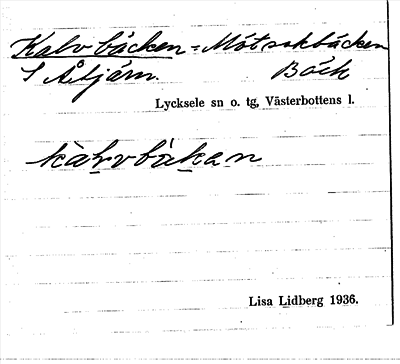 Kalvbäcken = Mötsokbäcken
S Åtjärn. Bäck
Lycksele sn o. tg, Västerbottens l.
kàḷvbäkan
Lisa Lidberg 1936.